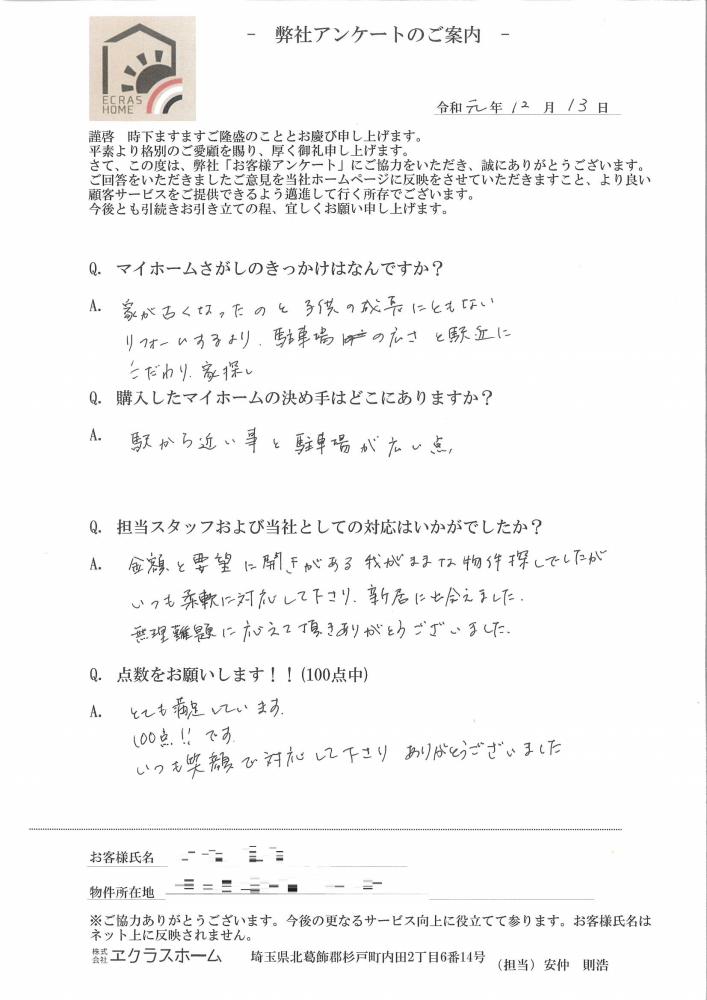 ECRAS
HOME
- 弊社アンケートのご案内 -
令和 元 年 12 月 13 日
謹啓　時下ますますご隆盛のこととお慶び申し上げます。
平素より格別のご愛顧を賜り、厚く御礼申し上げます。
さて、この度は、弊社「お客様アンケート」にご協力をいただき、誠にありがとうございます。
ご回答をいただきましたご意見を当社ホームページに反映をさせていただきますこと、より良い
顧客サービスをご提供できるよう邁進して行く所存でございます。
今後とも引続きお引き立ての程、宜しくお願い申し上げます。
Q. マイホームさがしのきっかけはなんですか？
A. 家が古くなったのと子供の成長にともない
リフォームするより、駐車場の広さと駅近に
こだわり、家探し
Q. 購入したマイホームの決め手はどこにありますか？
A. 駅から近い事と駐車場が広い点、
Q. 担当スタッフおよび当社としての対応はいかがでしたか？
A. 金額と要望に開きがある我がままな物件探しでしたが
いつも柔軟に対応して下さり、新居に出会えました。
無理難題に応えて頂きありがとうございました。
Q. 点数をお願いします！！(100点中)
A. とても満足しています。
100点!!です。
いつも笑顔で対応して下さりありがとうございました
お客様氏名
物件所在地
※ご協力ありがとうございます。今後の更なるサービス向上に役立てて参ります。お客様氏名は
ネット上に反映されません。
株式会社 ヱクラスホーム　埼玉県北葛飾郡杉戸町内田2丁目6番14号　（担当）安仲　則浩